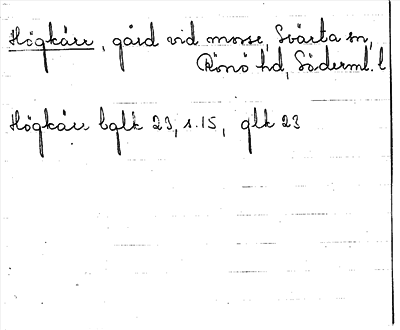 Högkärr, gård vid mosse, Svärta sn,
Rönö hd, Söderml. l
Högkärr bglk 23, 1.15, glk 23